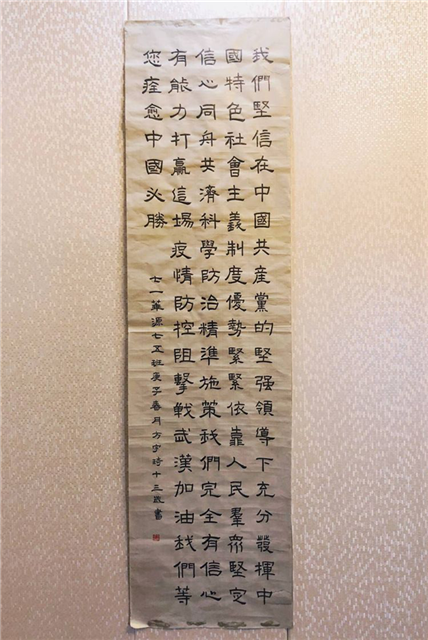 我們堅信在中國共產黨的堅强領導下充分發揮中
國特色社會主義制度優勢緊緊依靠人民羣眾堅定
信心同舟共濟科學防治精準施策我們完全有信心
有能力打贏這場疫情防控阻擊戰武漢加油我們等
您痊愈中國必勝
七一華源七五班庚子春月方宇十三歲書